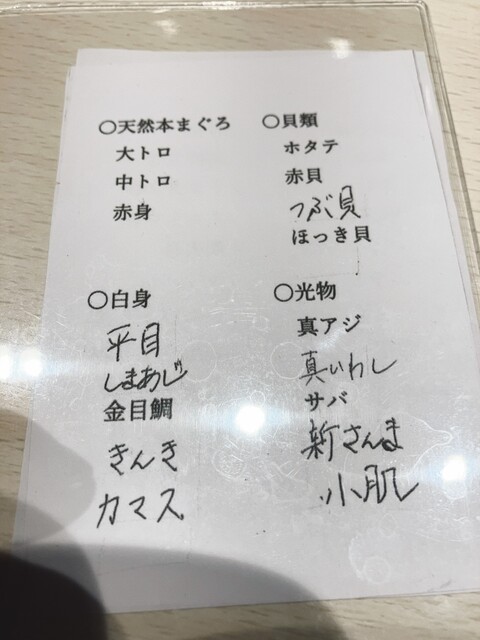 ○天然本まぐろ
大トロ
中トロ
赤身
○貝類
ホタテ
赤貝
つぶ貝
ほっき貝
○白身
平目
しまあじ
金目鯛
きんき
カマス
○光物
真アジ
真いわし
サバ
新さんま
小肌